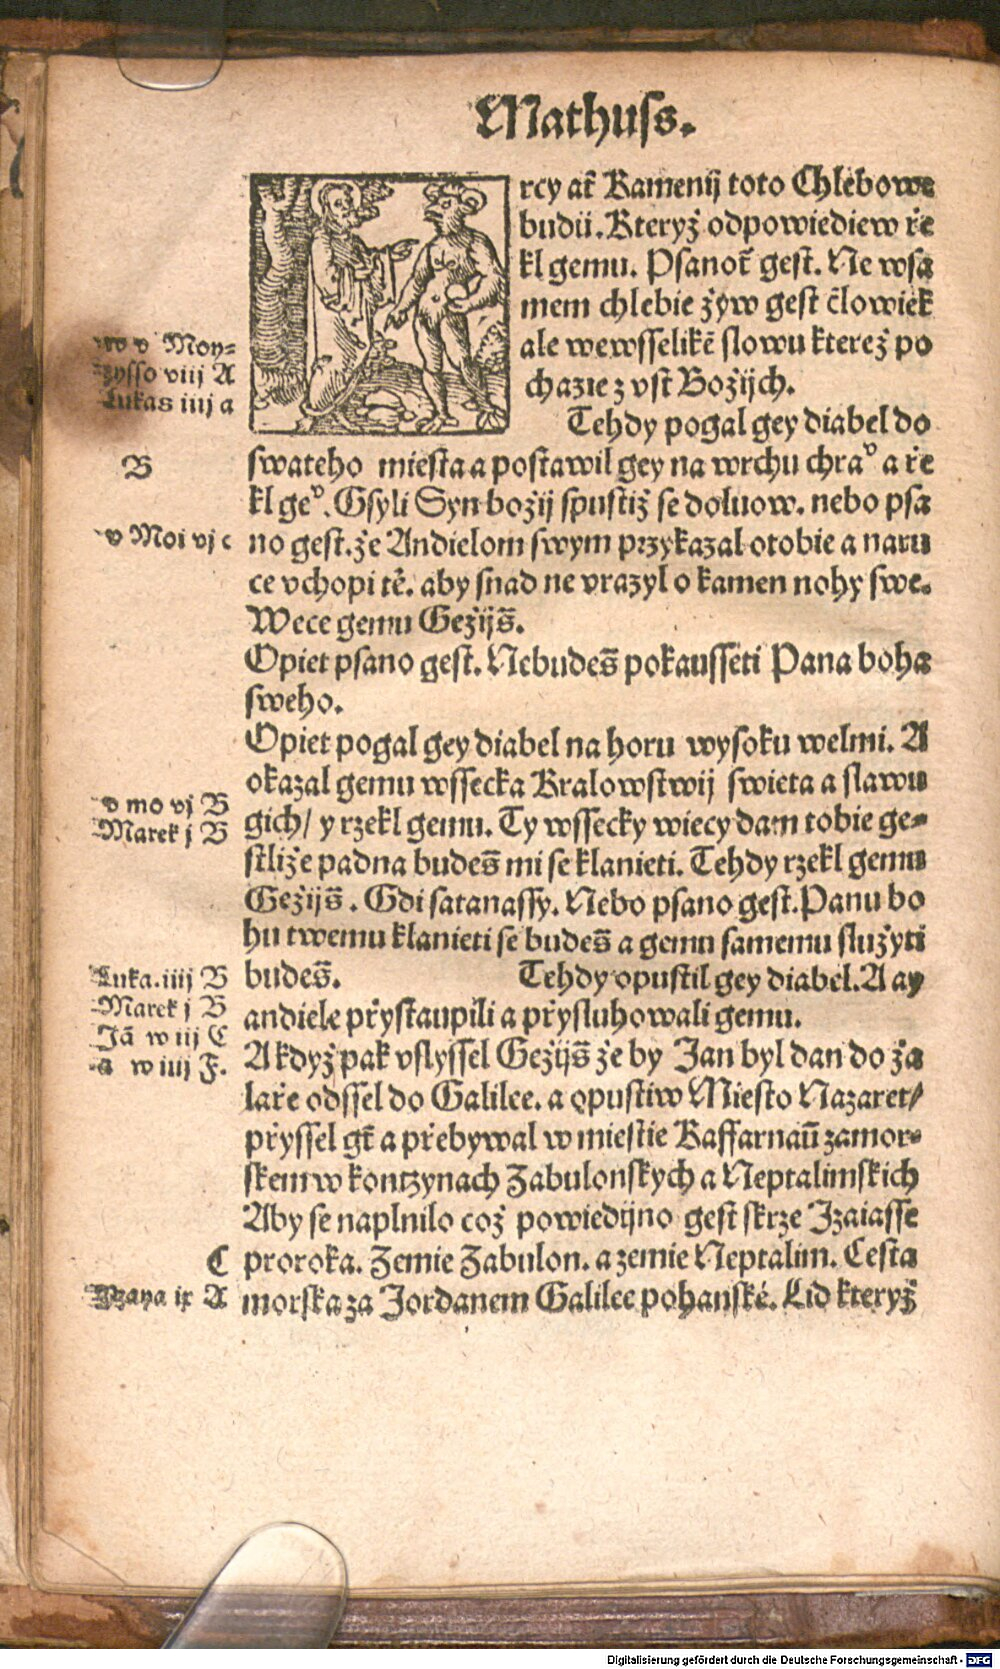 Mathuss.
rcy ať Kamenij toto Chlebowe
budu. Kteryž odpowiediew ře
kl gemu. Psanoť gest. Ne wsa
mem chlebie žyw gest člowiek
ale wewsselikē slowu kterež po
chazie z vst Božijch.
w v Moy=
zysso viij A
Lukas iiij a
Tehdy pogal gey diabel do
B
swateho miesta a postawil gey na wrchu chraᵛ a ře
kl geᵛ. Gsyli Syn božij spustiž se doluow. nebo psa
v Moi vj c
no gest. že Andielom swym przykazal otobie a naru
ce vchopi tē. aby snad ne vrazyl o kamen nohy swe.
Wece gemu Gežijs̄.
Opiet psano gest. Nebudes̄ pokausseti Pana boha
sweho.
Opiet pogal gey diabel na horu wysoku welmi. A
okazal gemu wssecka Kralowstwij swieta a slawu
v mo vj B
Marek j B
gich/ y rzekl gemu. Ty wssecky wiecy dam tobie ge=
stliže padna budes̄ mi se klanieti. Tehdy rzekl gemu
Gežijs̄. Gdi satanassy. Nebo psano gest. Panu bo
hu twemu klanieti se budes̄ a gemu samemu služyti
Luka. iiij B
budes̄. Tehdy opustil gey diabel. A ay
Marek j B
andiele přystaupili a přysluhowali gemu.
Jā w iij C
a w iiij F.
A když pak vslyssel Gežijs̄ že by Jan byl dan do ža
laře odssel do Galilee. a opustiw Miesto Nazaret/
přyssel gť a přebywal w miestie Kaffarnaū zamor=
skem w kontzynach Zabulonskych a Neptalimskich
Aby se naplnilo což powiedijno gest skrze Izaiasse
C
proroka. Zemie Zabulon. a zemie Neptalim. Cesta
Yzaya ix A
morska za Jordanem Galilee pohanské. Lid kteryž
Digitalisierung gefördert durch die Deutsche Forschungsgemeinschaft - DFG